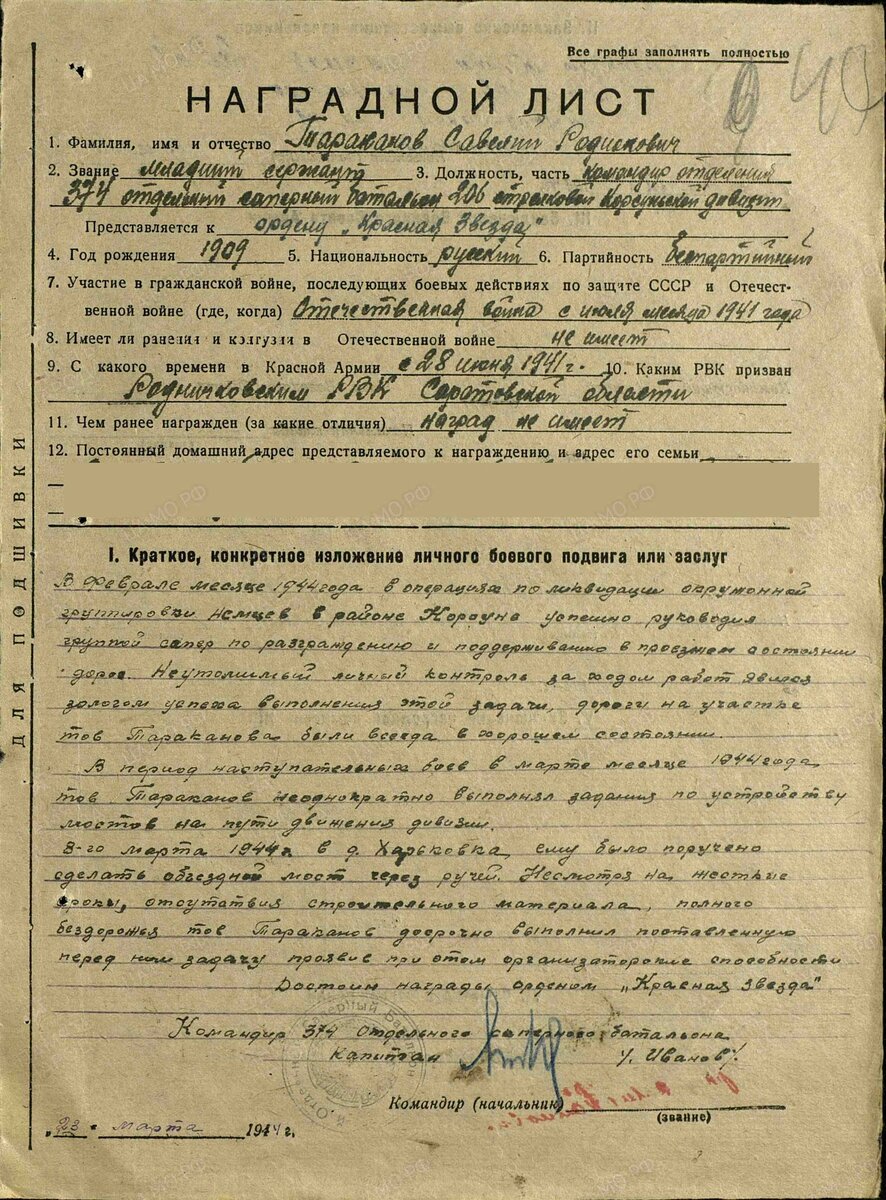 Все графы заполнять полностью
НАГРАДНОЙ ЛИСТ
1. Фамилия, имя и отчество Тараканов Савелий Родионович
2. Звание младший сержант 3. Должность, часть Командир отделения
374 отдельный саперный батальон 206 стрелковой Корсуньской дивизии
Представляется к ордену „Красная Звезда"
4. Год рождения 1909 5. Национальность русский 6. Партийность беспартийный
7. Участие в гражданской войне, последующих боевых действиях по защите СССР и Отечест-
венной войне (где, когда) Отечественная война с июля месяца 1941 года
8. Имеет ли ранения и контузии в Отечественной войне не имеет
9. С какого времени в Красной Армии с 28 июня 1941 г. 10. Каким РВК призван
Родничковским РВК Саратовской области
11. Чем ранее награжден (за какие отличия) наград не имеет
12. Постоянный домашний адрес представляемого к награждению и адрес его семьи
ДЛЯ ПОДШИВКИ
I. Краткое, конкретное изложение личного боевого подвига или заслуг
В феврале месяце 1944 года в операциях по ликвидации окруженной
группировки немцев в районе Корсуня успешно руководил
группой сапер по разграждению и поддерживанию в проезжем состоянии
дорог. Неутомимый личный контроль за ходом работ явился
залогом успеха выполнения этой задачи, дороги на участке
тов Тараканова были всегда в хорошем состоянии.
В период наступательных боев в марте месяце 1944 года
тов. Тараканов неоднократно выполнял задания по устройству
мостов на пути движения дивизии.
8-го марта 1944г. в д. Харьковка, ему было поручено
сделать объездной мост через ручей. Несмотря на жесткие
сроки, отсутствия строительного материала, полного
бездорожья тов Тараканов досрочно выполнил поставленную
перед ним задачу проявив при этом организаторские способности
Достоин награды орденом „Красная Звезда"
Командир 374 Отдельного саперного батальона
Капитан /Иванов/
Командир (начальник)
(звание)
„23" марта 1944 г.